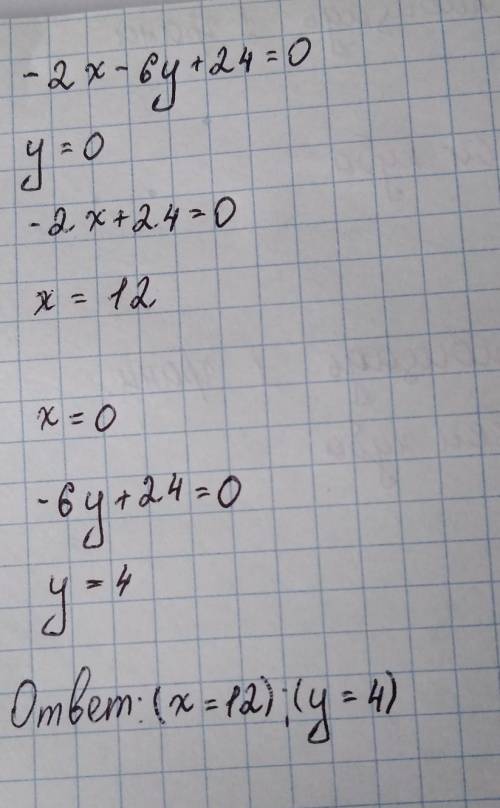 -2x-6y+24=0
y=0
-2x+24=0
x = 12
x=0
-6y+24=0
y=4
Ответ: (x=12);(y=4)